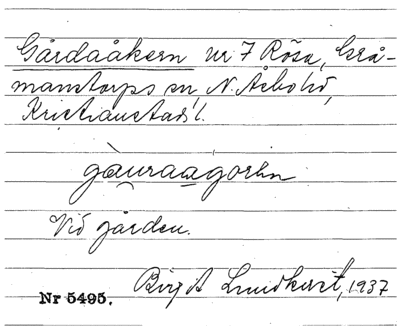 Gårdaåkern nr 7 Rösa, Grå-
manstorps sn, N. Åsbo hd,
Kristianstads l.
Vid gården.
Birgit Lundkvist, 1937
Nr 5495.